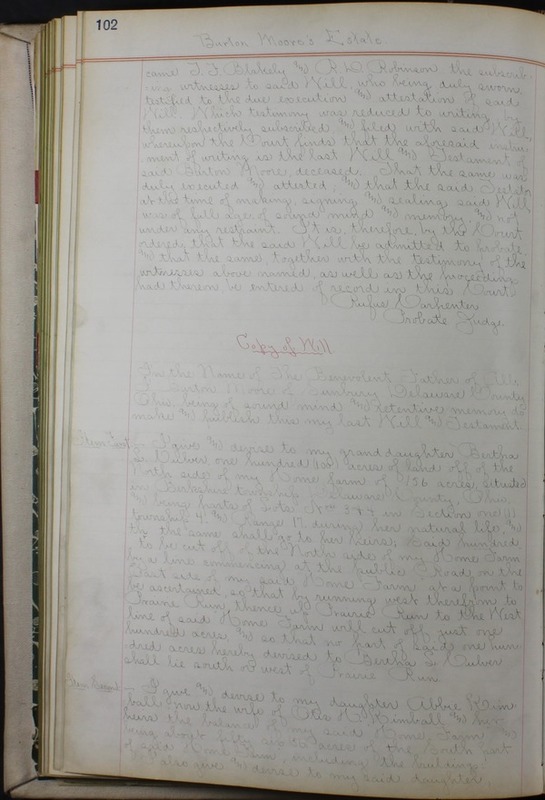 102
Burton Moore's Estate
came T. F. Blakely & R. D. Robinson the subscrib-
ing witnesses to said Will, who being duly sworn
testified to the due execution & attestation of said
Will. Which testimony was reduced to writing, by
them respectively subscribed & filed with said Will,
whereupon the Court finds that the aforesaid instru-
ment of writing is the last Will & Testament of
said Burton Moore, deceased. That the same was
duly executed & attested, & that the said Testator
at the time of making, signing & sealing said Will
was of full age, of sound mind & memory, & not
under any restraint. It is, therefore, by the Court
ordered that the said Will be admitted to probate,
& that the same, together with the testimony of the
witnesses above named, as well as the proceedings
had therein be entered of record in this Court.
Rufus Carpenter
Probate Judge.
Copy of Will
In the Name of The Benevolent Father of All:
I, Burton Moore of Sunbury, Delaware County
Ohio, being of sound mind & retentive memory do
make & publish this my last Will & Testament.
Item First - I give & devise to my granddaughter Bertha
S. Culver one hundred (100) acres of land off of the
North side of my Home farm of 156 acres, situated
in Berkshire township, Delaware County, Ohio
& being parts of Lots Nos 3 & 4 in Section one (1)
township 4, & Range 17 during her natural life, &
the same shall go to her heirs; Said hundred
to be cut off of the North side of my Home Farm
by a line commencing at the public Road, on the
East side of my said Home Farm at a point to
be ascertained, so that by running west therefrom to
Prairie Run, thence up Prairie Run to the West
line of said Home Farm will cut off just one
hundred acres, & so that no part of said one hun-
dred acres hereby devised to Bertha S. Culver
shall lie south or west of Prairie Run.
Item Second - I give & devise to my daughter Abbie Kim-
ball, now the wife of Otis Kimball & her
heirs the balance of my said Home Farm
being about fifty six 56 acres of the South part
of said Home Farm, including the building.
I also give & devise to my said daughter,